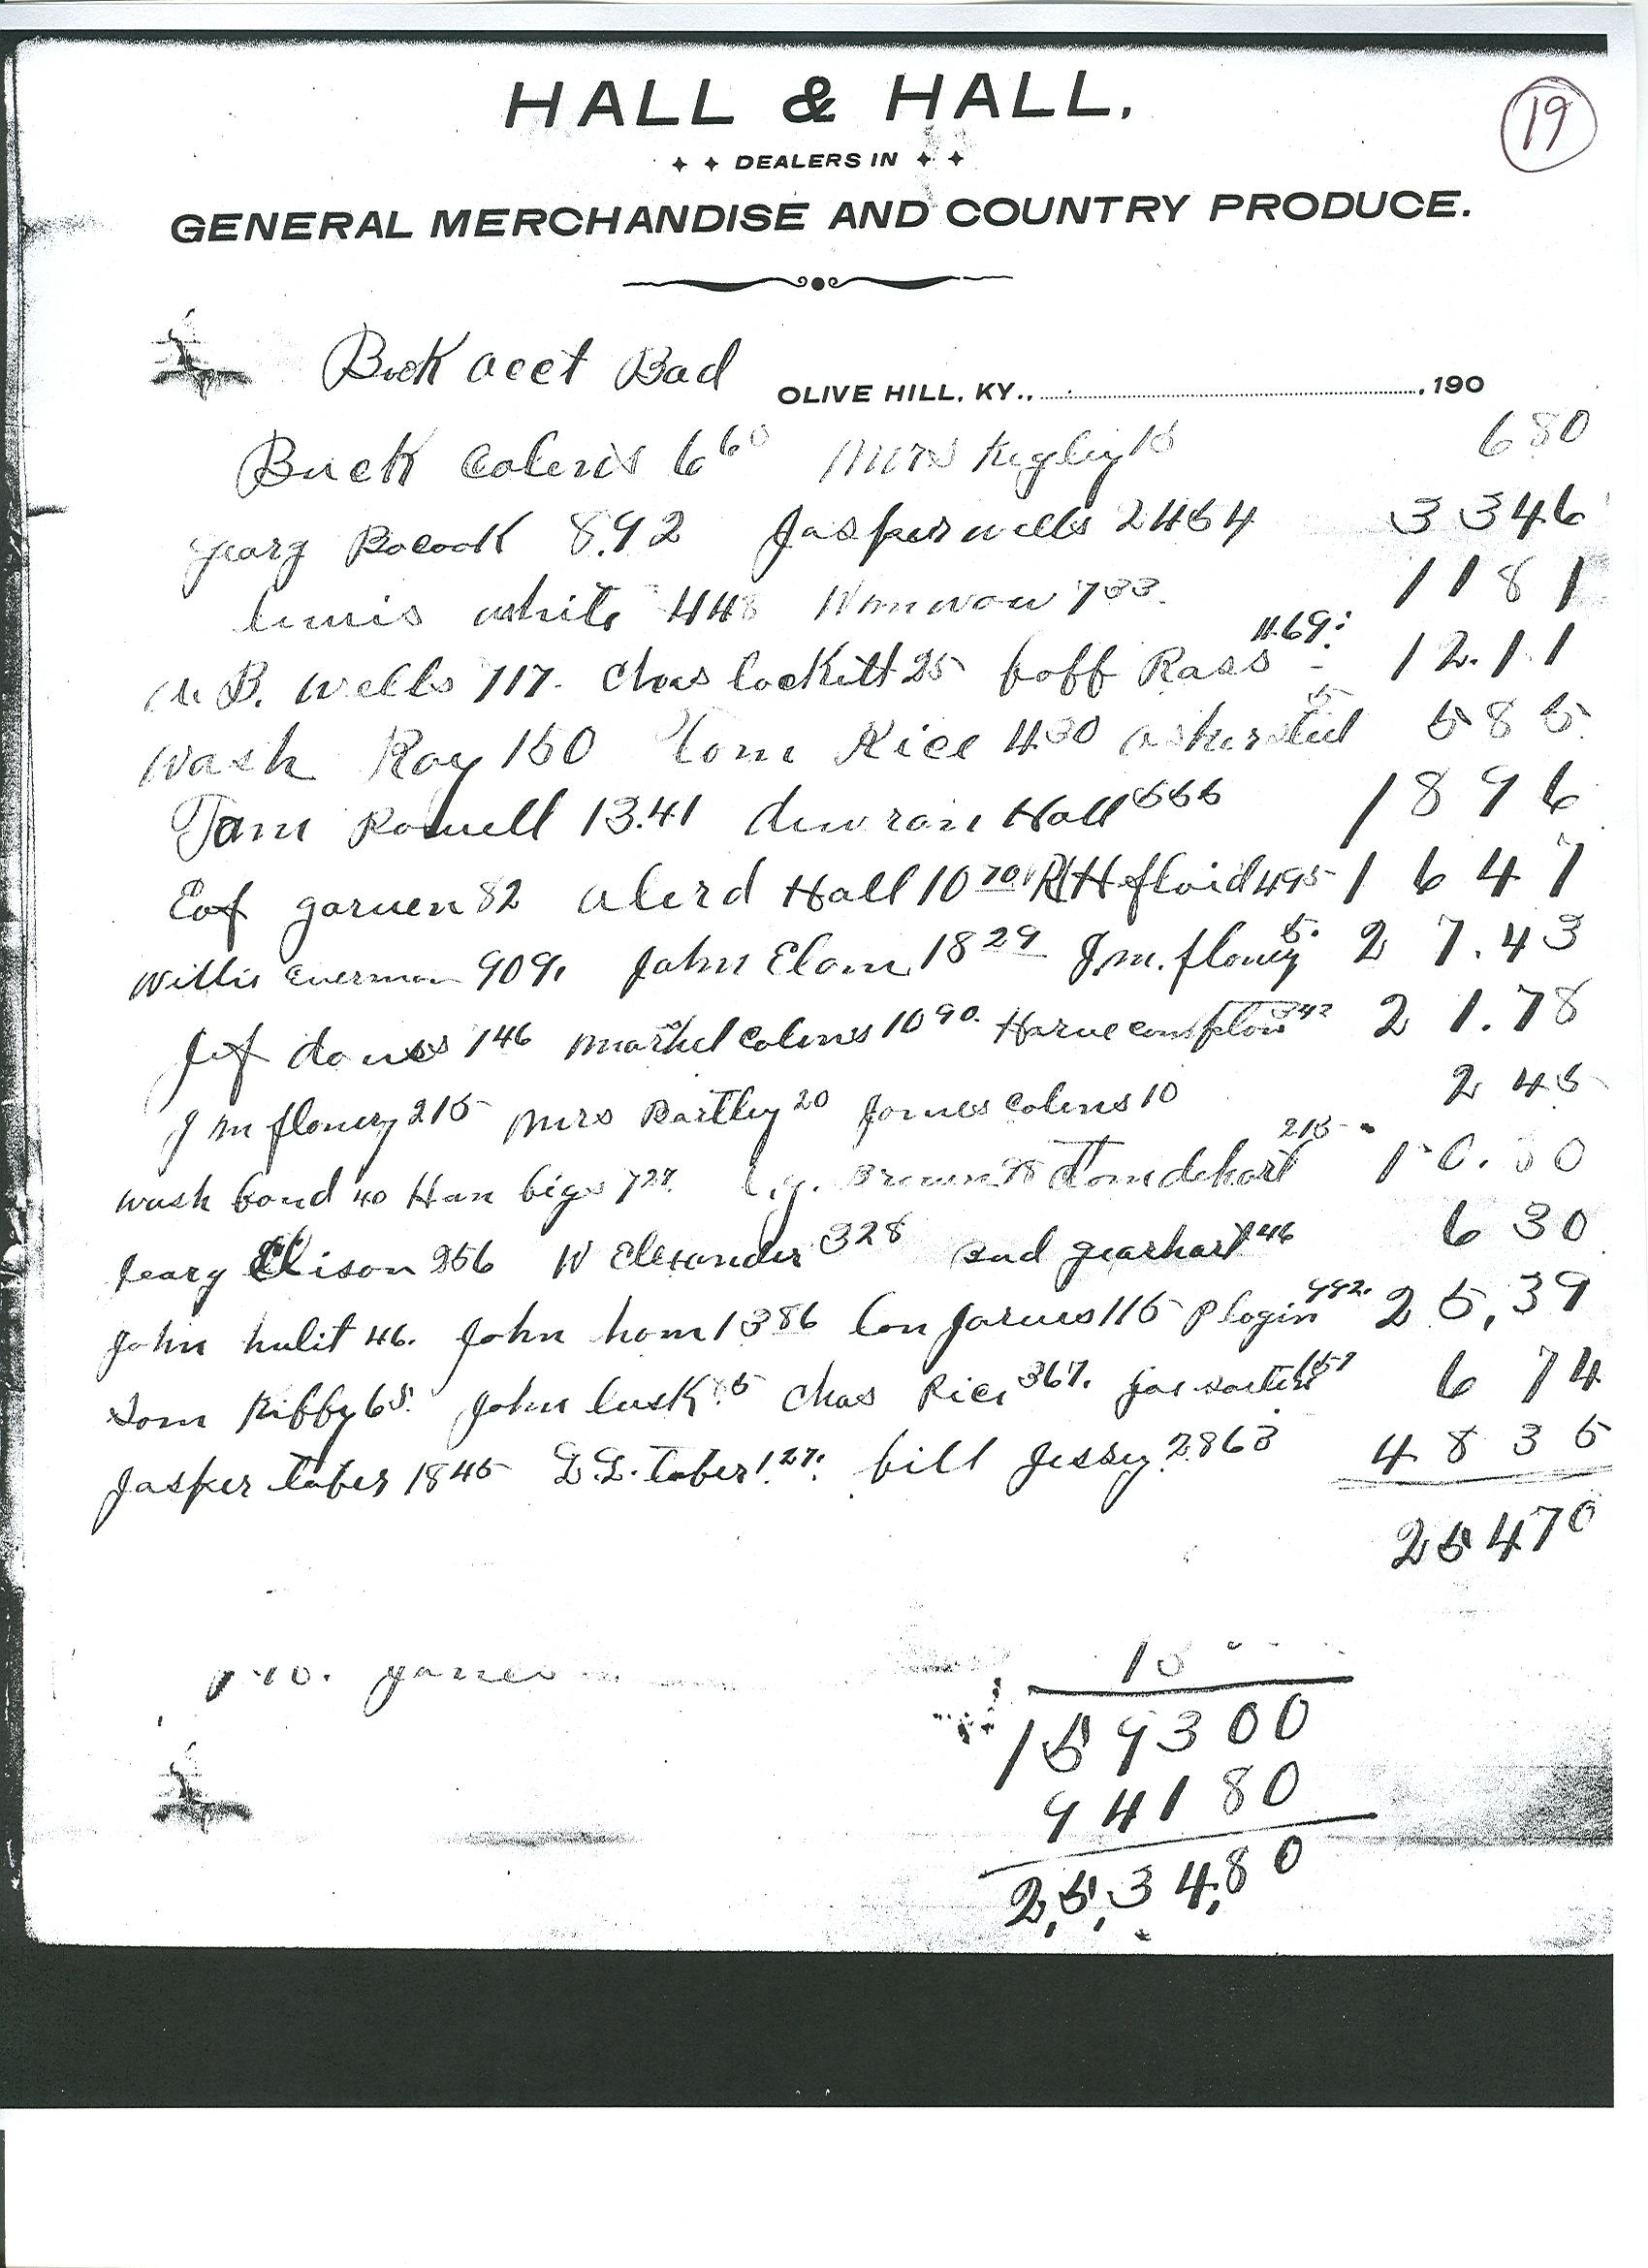 HALL & HALL.
19
DEALERS IN
GENERAL MERCHANDISE AND COUNTRY PRODUCE.
Book acct Bad
OLIVE HILL, KY., , 190
Buck Colins 6 60 Mrs Kegley 680
gearg Bocook 8.92 Jasper wells 2454 3346
luuis white 448 733 1181
B. wells 717. Chas lockitt 25 boff Rass 12.11
Wash Ray 150 Tom Rice 430 5 585
Tam Powell 13.41 Hall 555 1896
Eof garven 82 alerd Hall 10 70 R H floid 495 1647
Willis Everman 909. John Elam 18 29 J.m. flouey 5. 27.43
Jef 746 colins 10 90. Harve 342 21.78
J m flouery 215 Mrs Bartley 20 James Colins 10 245
Wash bond 40 Han bigs 727. Brown Tom dehart 215
Jearg Elison 256 W Elexander 328 Bud gearhart 46 630
John hulit 46. John ham 13 86 Lon Jarves 115 P login 992. 25,39
Tom Kibby 65. John lusk Chas Rice 367. 157 674
Jasper taber 1845 L.L. taber 1.27. bill Jessey 2863 4835
25470
159300
94180
2,5,34,80